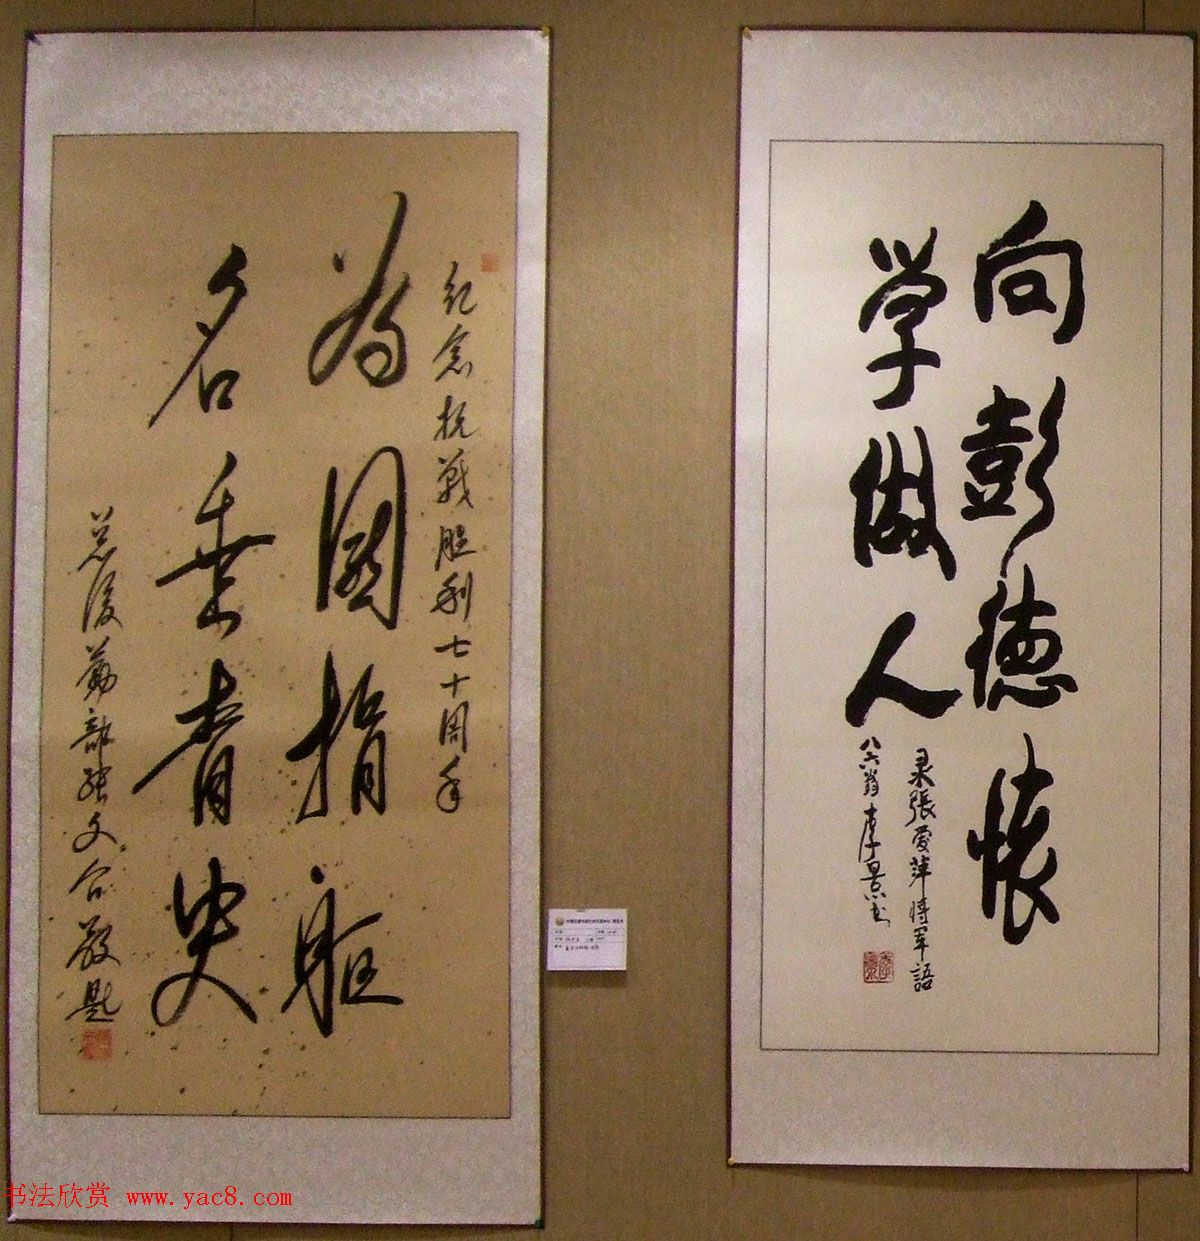 向彭德怀
学做人
录張爱萍将军語
八六翁李景书
纪念抗战胜利七十周年
为國捐躯
名垂青史
总后蘇部張文台敬题
书法欣赏 www.yac8.com